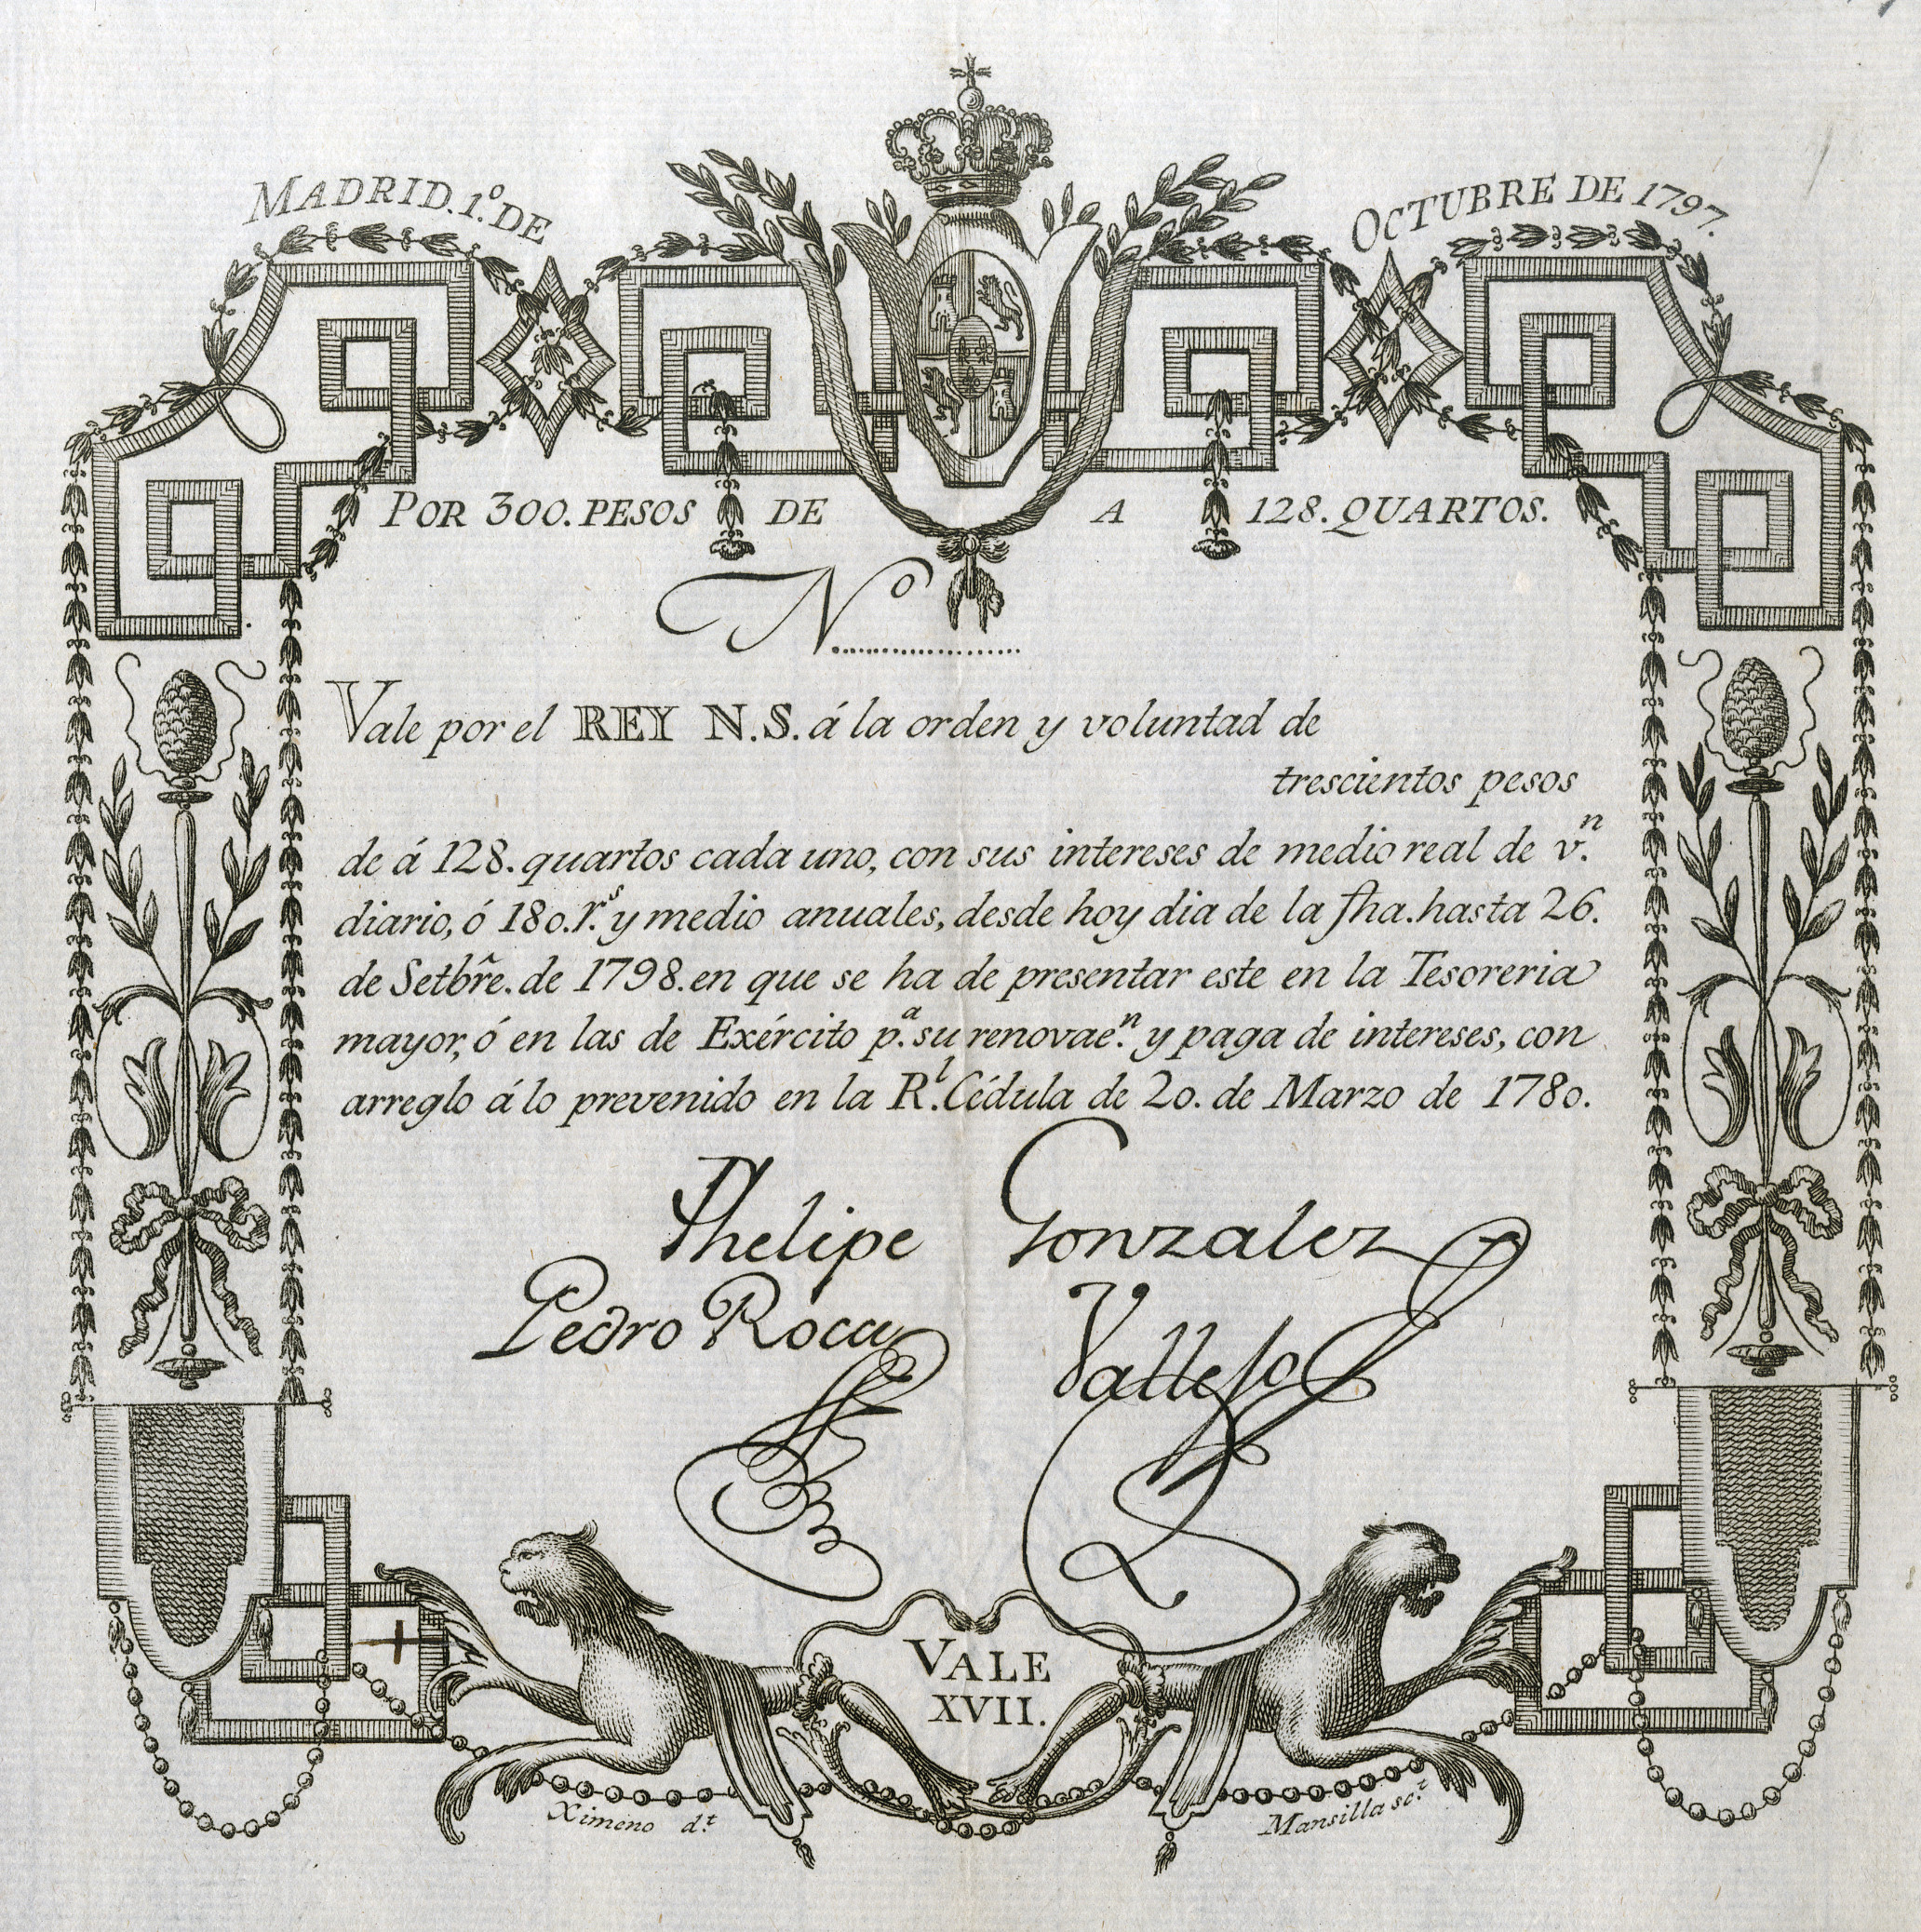 MADRID. 1.º DE OCTUBRE DE 1797.
POR 300. PESOS DE A 128. QUARTOS.
Nº....................
Vale por el REY N.S. á la orden y voluntad de
trescientos pesos
de á 128. quartos cada uno, con sus intereses de medio real de v.ⁿ
diario, ó 180. r.ˢ y medio anuales, desde hoy dia de la fha. hasta 26.
de Setbr̃e. de 1798. en que se ha de presentar este en la Tesoreria
mayor, ó en las de Exército p.ª su renovae.ⁿ y paga de intereses, con
arreglo á lo prevenido en la R.ˡ Cédula de 20. de Marzo de 1780.
Phelipe Gonzalez
Pedro Roca Vallejo
VALE
XVII.
Ximeno d.ᵗ Mansilla sc.ᵗ